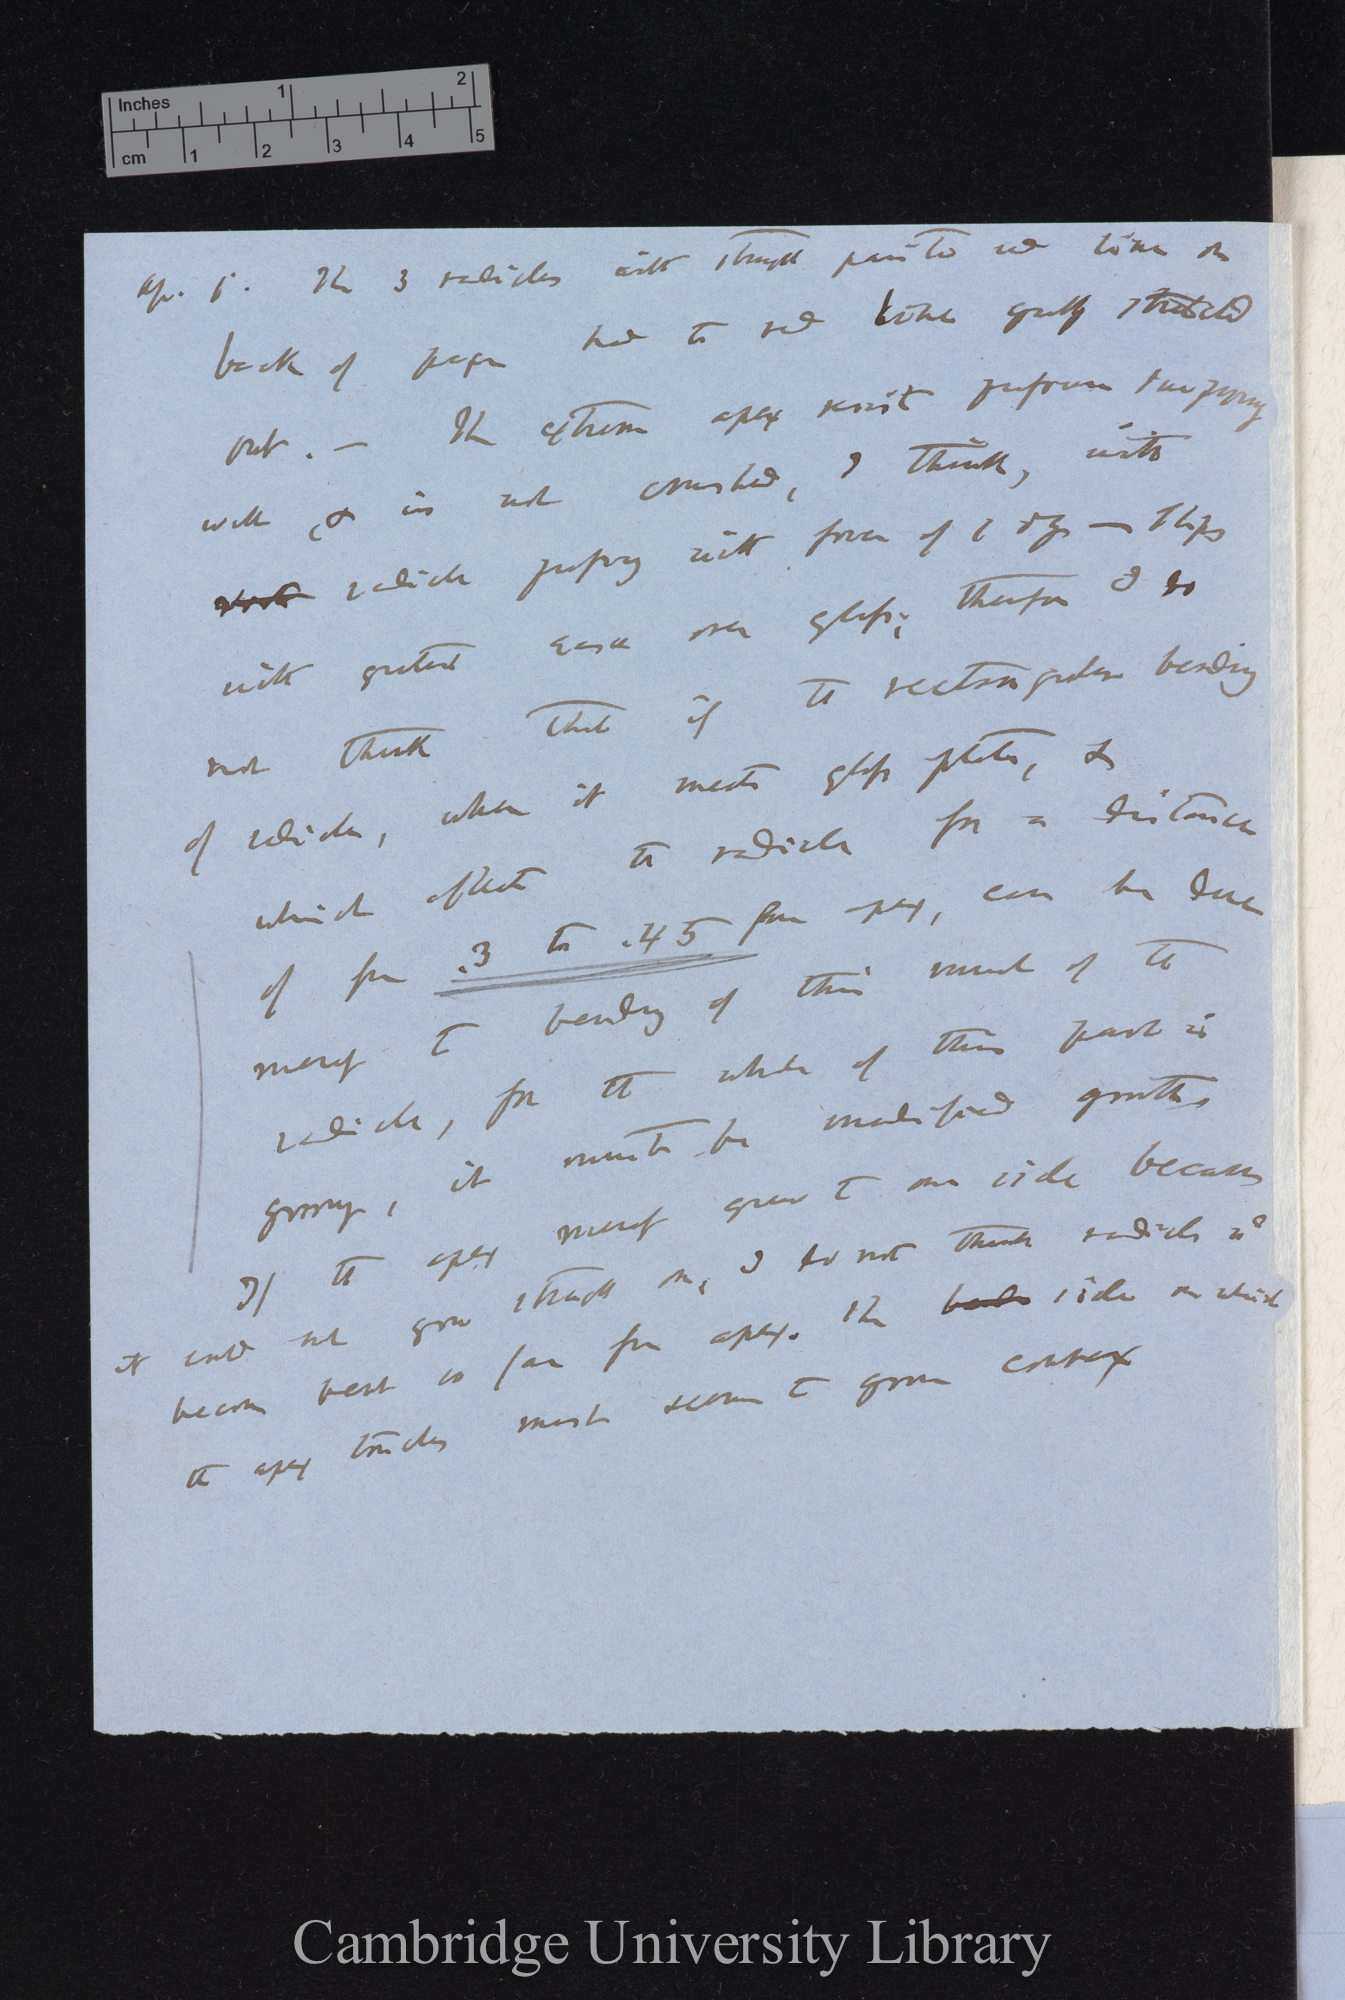 Inches 1 2
cm 1 2 3 4 5
Ap. 5. The 3 radicles with straight painted red lines on
back of page had to red lines greatly stretched
out. — The extreme apex resists pressure
well & is not crushed, I think, with
radicle pressing with force of 2 — slips
with greatest ease over glass; therefore I do
not think that if the rectangular bending
of radicle, when it meets glass plate, &
which affects the radicle for a distance
of from .3 to .45 from apex, can be due
merely to bending of this much of the
radicle, for the whole of this part is
growing, it must be modified growth
If the apex merely grew to one side because
it could not grow straight on, I do not think radicle wd
become bent so far from apex. The side on which
the apex touches must seem to grow convex
Cambridge University Library